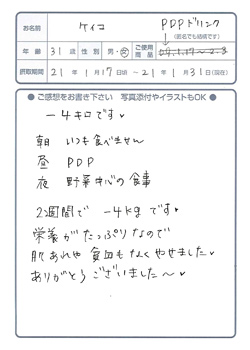 お名前 ケイコ PDPドリンク
(匿名でも結構です)
年齢 31歳 性別 男・女 ご使用商品
摂取期間 21年1月17日頃〜21年1月31日(現在)
● ご感想をお書き下さい 写真添付やイラストもOK ●
-4キロです♥
朝 いつも食べません
昼 PDP
夜 野菜中心の食事
2週間で -4kgです♥
栄養がたっぷりなので
肌あれや貧血もなくやせました♥
ありがとうございました〜♥